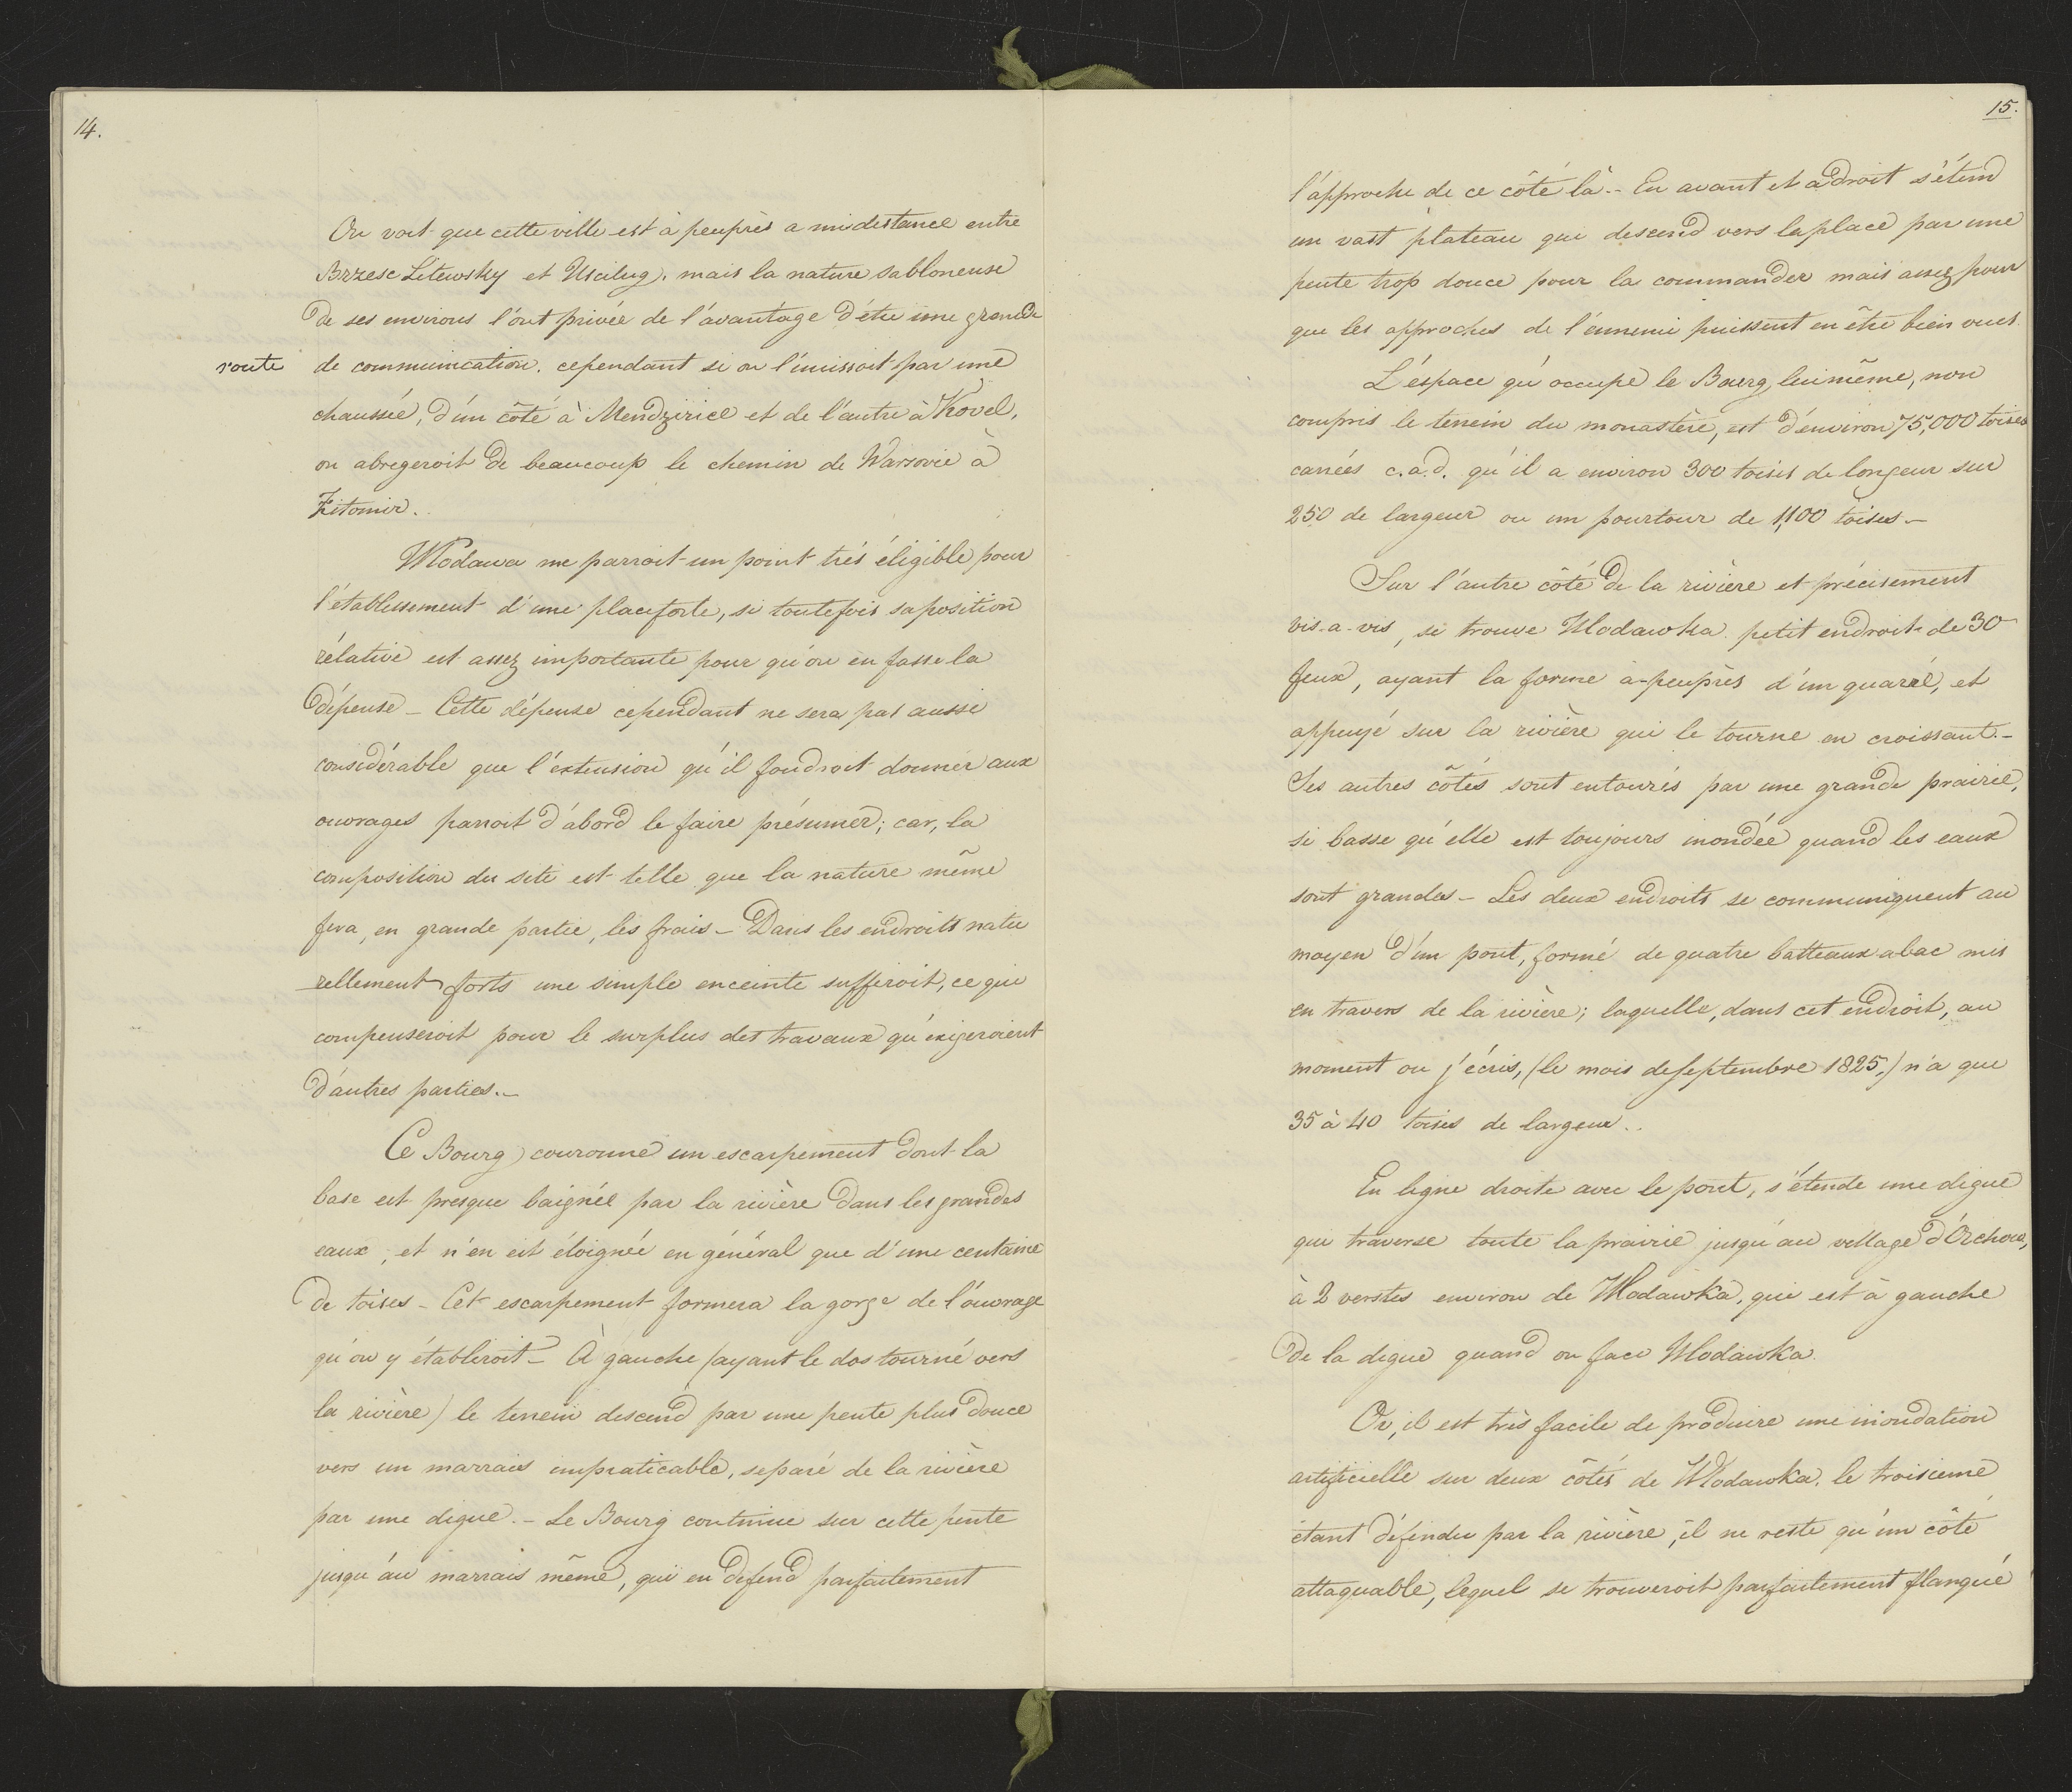 14.
On voit que cette ville est à peuprès a midistance entre
Brzesc Litewsky et Uscilug. mais la nature sabloneuse
de ses environs l'ont privée de l'avantage d'être une grande
route de communication. cependant si on l'unissoit par une
chaussée, d'un côté à Mendzirice et de l'autre à Kovel,
on abregeroit de beaucoup le chemin de Warsovie à
Zitomir.
Wlodawa me parroit un point très éligible pour
l'établissement d'une placeforte, si toutefois saposition
rélative est assez importante pour qu'on en fasse la
dépense – Cette dépense cependant ne sera pas aussi
considérable que l'extension qu'il foudroit donner aux
ouvrages parroit d'abord le faire présumer; car, la
composition du site est telle que la nature même
fera, en grande partie, les frais – Dans les endroits natu
rellement forts une simple enceinte sufferoit, ce qui
compenseroit pour le surplus des travaux qu'exigeroient
d'autres parties. –
Ce Bourg couronne un escarpement dont la
base est presque baignée par la rivière dans les grandes
eaux, et n'en est éloignée en général que d'une centaine
de toises – Cet escarpement formera la gorge de l'ouvrage
qu'on y établiroit – À gauche (ayant le dos tourné vers
la rivière) le terrein descend par une pente plus douce
vers un marrais impraticable, separé de la rivière
par une digue. – Le Bourg continue sur cette pente
jusqu'au marrais même, qui en defend parfaitement
15.
l'approche de ce côté là. – En avant et àdroit s'étend
un vast plateau qui descend vers laplace par une
pente trop douce pour la commander mais assez pour
que les approches de l'ennemi puissent en être bien vues.
L'éspace qu'occupe le Bourg, luimême, non
compris le terrein du monastère, est d'environ 75,000 toises
carrées c.a.d. qu'il a environ 300 toises de longeur sur
250 de largeur ou un pourtour de 1,100 toises –
Sur l'autre côté de la rivière et précisement
vis-a-vis, se trouve Wlodawka petit endroit de 30
feux, ayant la forme à-peuprès d'un quarré, et
appuyé sur la rivière qui le tourne en croissant. –
Ses autres côtés sont entourés par une grande prairie,
si basse qu'elle est toujours inondée quand les eaux
sont grandes – Les deux endroits se communiquent au
moyen d'un pont, formé de quatre batteaux abac mis
en travers de la rivière; laquelle, dans cet endroit, au
moment ou j'écris, (le mois de septembre 1825,) n'a que
35 à 40 toises de largeur..
En ligne droite avec le pont, s'étende une digue
qui traverse toute la prairie jusqu'au village d'Orchow,
à 2 verstes environ de Wlodawka, qui est à gauche
de la digue quand on face Wlodawka.
Or, il est très facile de produire une inondation
artificielle sur deux côtés de Wlodawka. le troisieme
étant défendu par la rivière, il ne reste qu'un côté
attaquable, lequel se trouveroit parfaitement flanqué